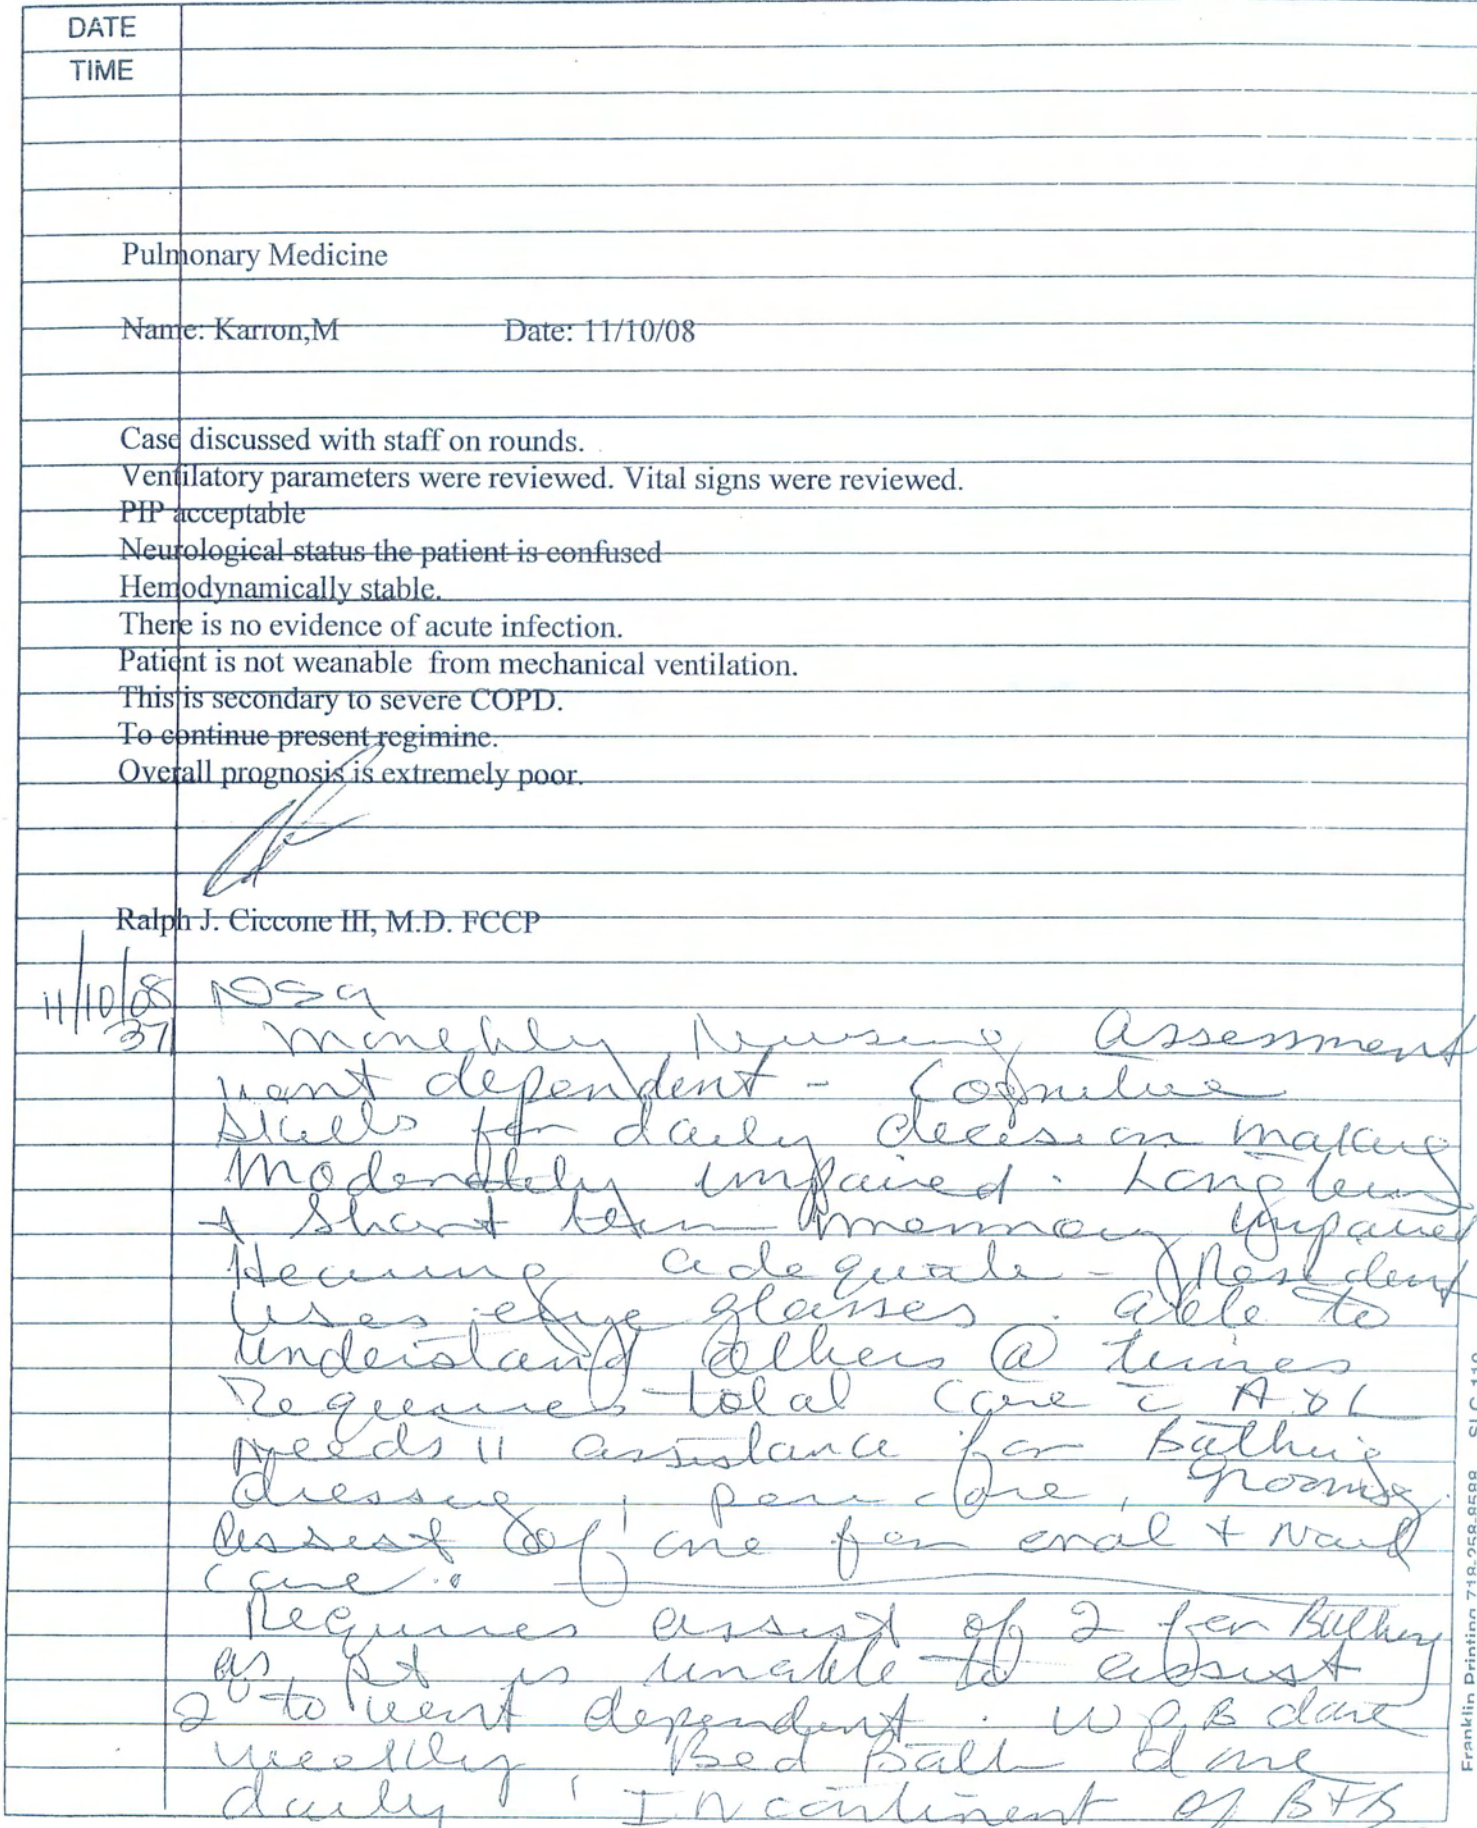 DATE
TIME
Pulmonary Medicine
Name: Karron,M Date: 11/10/08
Case discussed with staff on rounds.
Ventilatory parameters were reviewed. Vital signs were reviewed.
PIP acceptable
Neurological status the patient is confused
Hemodynamically stable.
There is no evidence of acute infection.
Patient is not weanable from mechanical ventilation.
This is secondary to severe COPD.
To continue present regimine.
Overall prognosis is extremely poor.
Ralph J. Ciccone III, M.D. FCCP
11/10/08 NSg
37 Monthly Nursing Assessment
vent dependent - Cognitive
Skills for daily decision making
Moderately impaired. Long term
+ Short term memory impaired
Hearing adequate - Resident
Uses eye glasses. able to
understand others @ times
Requires total care c̄ ADL
Needs II assistance for Bathing
dressing, peri care, grooming.
Assist of one for oral + Nail
care.
Requires assist of 2 for Bathing
as pt is unable to assist
2° to vent dependent. WPB done
weekly, Bed Bath done
daily, INcontinent of B+B
Franklin Printing 718-258-8588 SLC-110